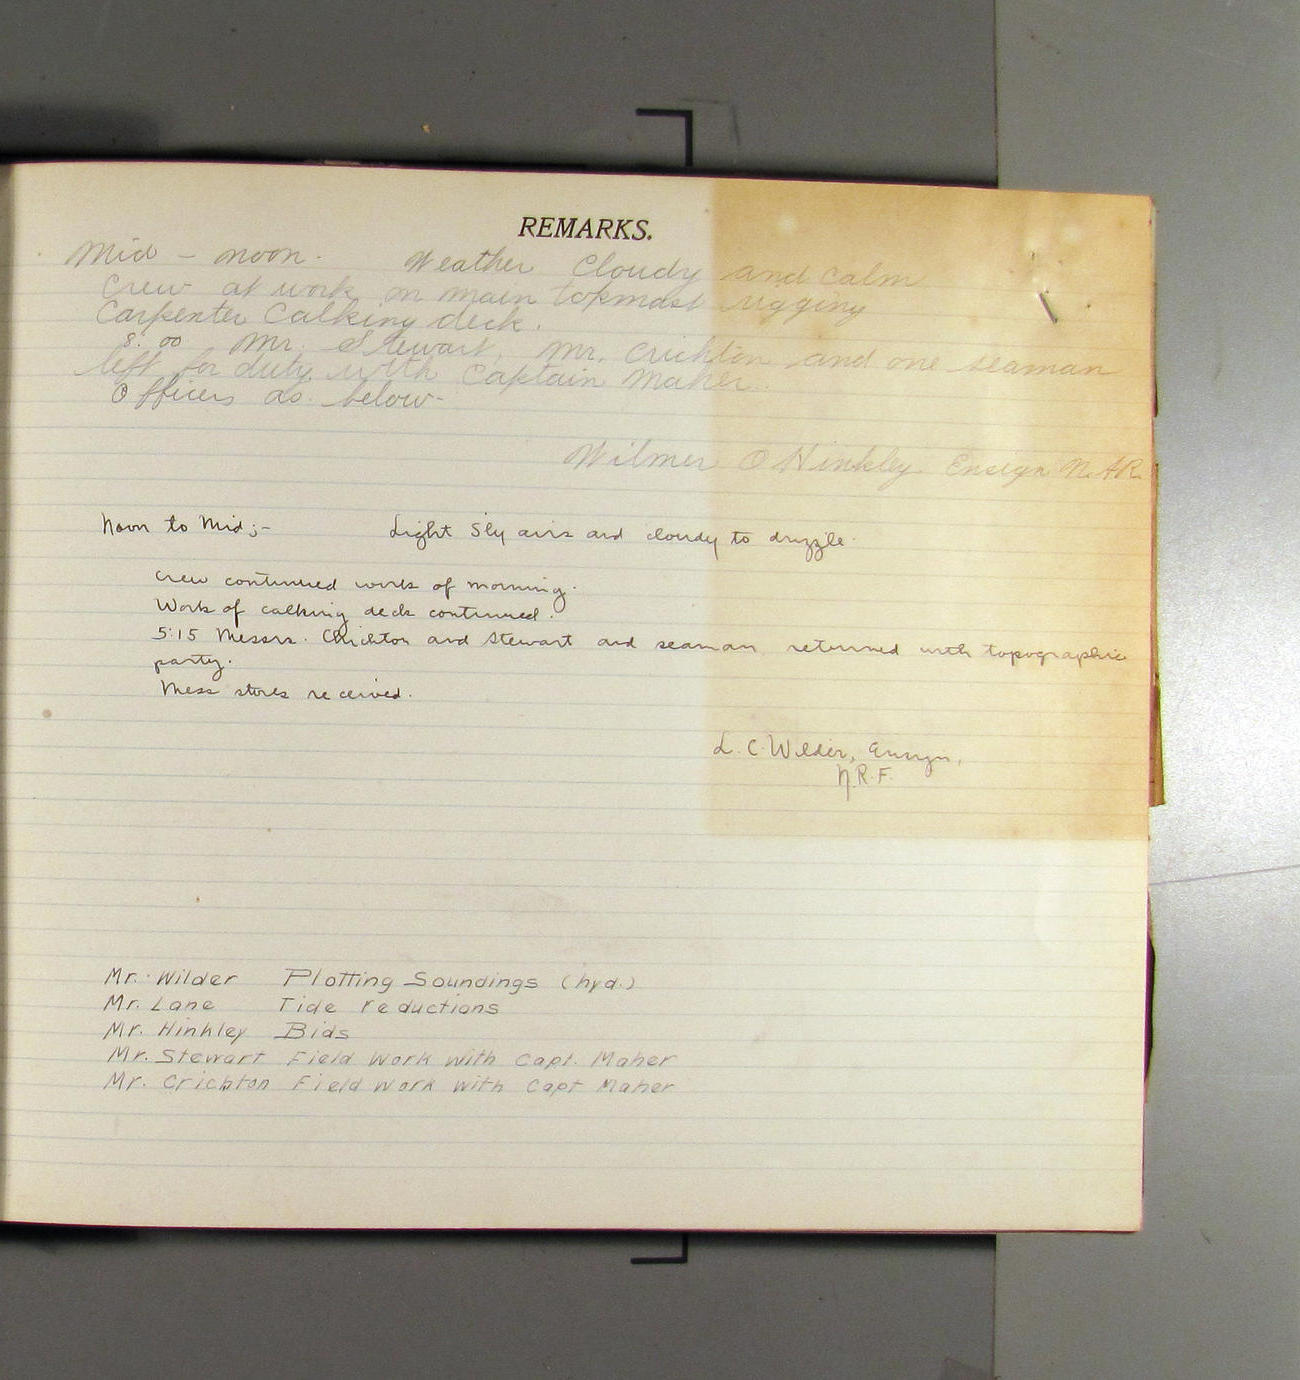 REMARKS.
Mid - noon. Weather Cloudy and Calm
Crew at work on main topmast rigging
Carpenter Calking deck.
8:00 Mr. Stewart, Mr. Crichton and one seaman
left for duty with Captain Maher.
Officers as below-
Wilmer O Hinkley Ensign N.R.
Noon to Mid;- Light S'ly airs and cloudy to drizzle.
Crew continued work of morning.
Work of calking deck continued.
5:15 Messrs. Crichton and Stewart and seaman returned with topographic
party.
Mess stores received.
L. C. Wilder, Ensign,
N.R.F.
Mr. Wilder Plotting Soundings (hyd.)
Mr. Lane Tide reductions
Mr. Hinkley Bids
Mr. Stewart Field Work with Capt. Maher
Mr. Crichton Field Work with Capt Maher